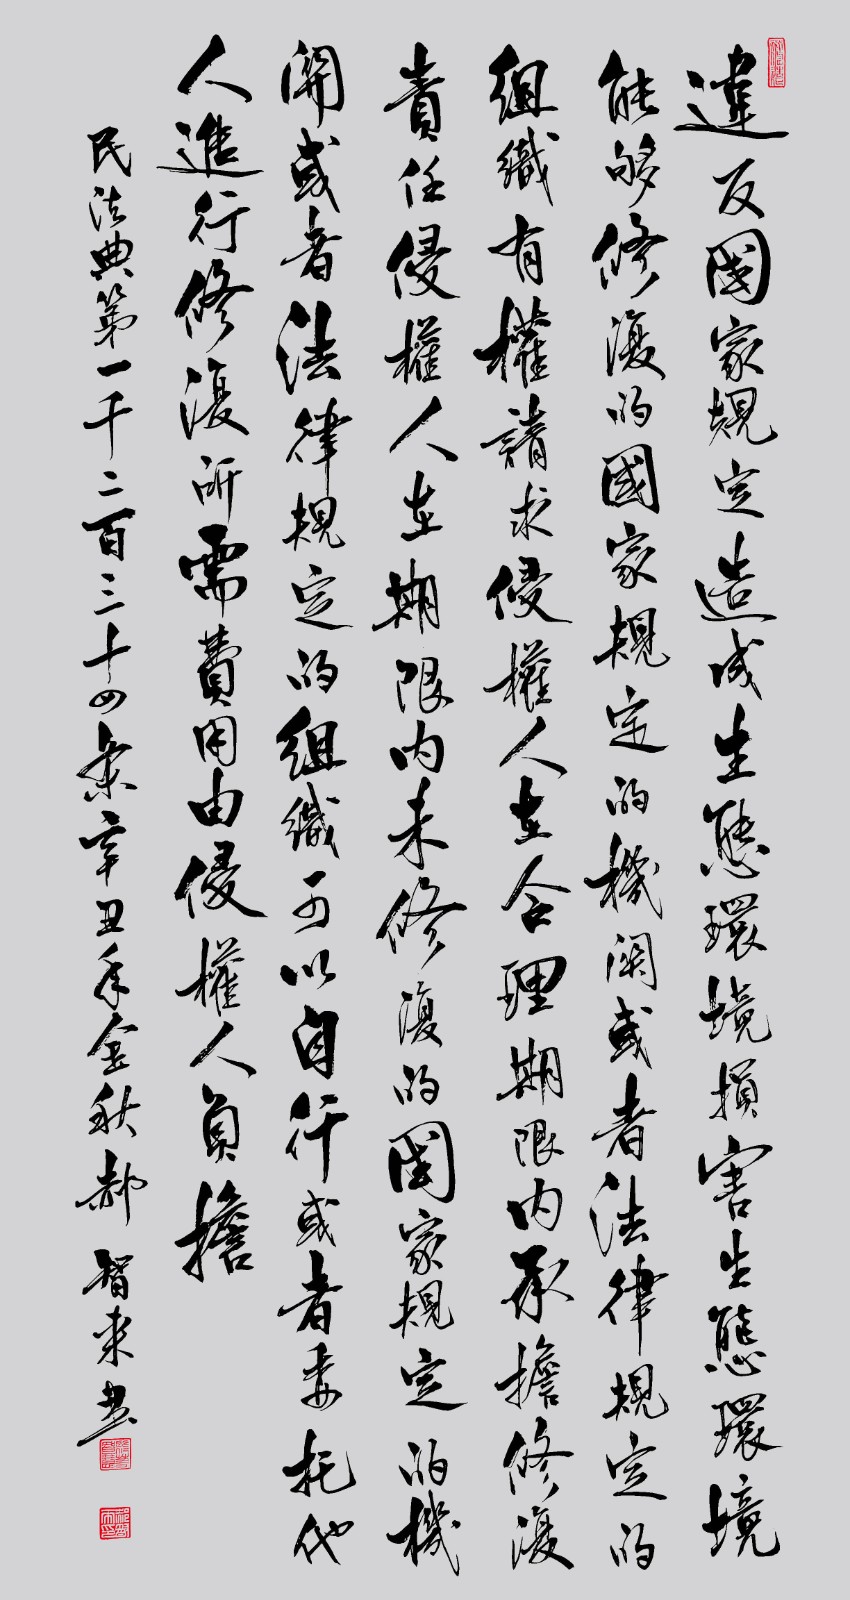 違反國家規定造成生態環境損害生態環境
能够修復的國家規定的機關或者法律規定的
組織有權請求侵權人在合理期限内承擔修復
責任侵權人在期限内未修復的國家規定的機
開或者法律規定的組織可以自行或者委托代
人進行修復所需費用由侵權人負擔
民法典第一千二百三十四条辛丑年金秋郝智来書